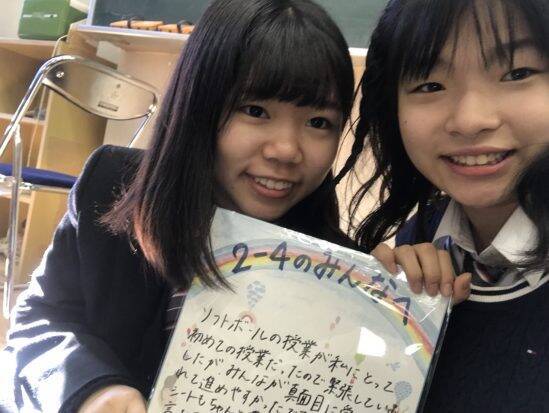 2-4のみんなへ
ソフトボールの授業が私にとって
初めての授業だったので緊張していま
したが みんなが真面目に
れて進めやすか
シートもちゃんと